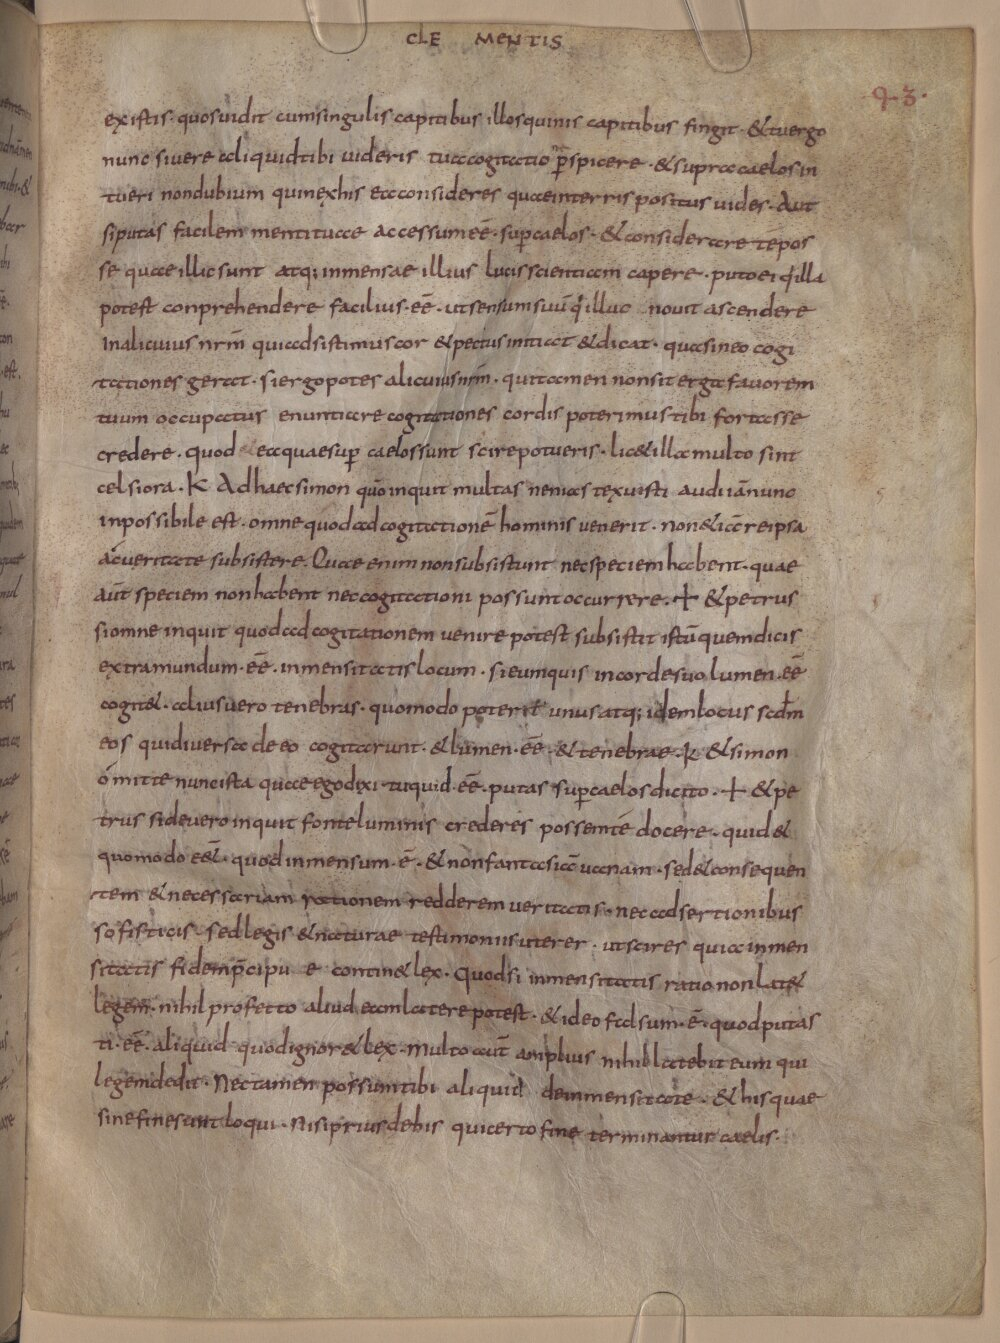 CLE MENTIS
93.
ex istis. quos uidit cum singulis capitibus illos quinis capitibus fingit. & tu ergo
nunc si uere aliquid tibi uideris tua cogitatio p̄spicere. & supra caelos in
tueri non dubium quin ex his ea consideres quae in terris positus uides. Aut
si putas facilem menti tuae accessum eē. sup caelos. & considerare te pos
se quae illic sunt atq; inmensae illius lucis scientiam capere. puto ei q illa
potest conprehendere facilius. eē. ut sensum suū q illuc nouit ascendere
In alicuius nrm̄ qui adsistimus cor & pectus initiat & dicat. quas in eo cogi
tationes gerat. si ergo potes alicuius nrm̄. qui tamen non sit erga fauorem
tuum occupatus enuntiare cogitationes cordis poterimus tibi fortasse
credere. quod ea quae sup caelos sunt scire potueris. lic& illa multo sint
celsiora. K Ad haec simon quō inquit multas nenias texuisti audi iā nunc
inpossibile est. omne quod ad cogitationē hominis uenerit. non & iā re ipsa
ac ueritate subsistere. Quae enim non subsistunt nec speciem habent. quae
aūt speciem non habent nec cogitationi possunt occurrere. + & petrus
si omne inquit quod ad cogitationem uenire potest subsistit istū quem dicis
extra mundum. eē. inmensitatis locum. si eum quis in corde suo lumen. eē
cogit&. alius uero tenebras. quomodo poterit unus atq; idem locus scdm
eos qui diuersa de eo cogitarunt. & lumen. eē. & tenebrae. K & simon
omitte nunc ista quae ego dixi. tu quid. eē. putas sup caelos dicito. + & pe
trus si de uero inquit fonte luminis crederes possem tē docere. quid &
quomodo e&. quod inmensum. ē. & non fantasiā uanam. sed & consequen
tem & necessariam rationem redderem ueritatis. nec adsertionibus
sofisticis sed legis & naturae testimoniis uterer. ut scires quia inmen
sitatis fidem p̄cipu e contin& lex. Quod si inmensitatis ratio non lat&
legem. nihil profecto aliud eam latere potest. & ideo falsum. ē. quod putas
ti. eē. aliquid quod ignor& lex. Multo aūt amplius nihil latebit eum qui
legem dedit. Nec tamen possum tibi aliquid de inmensitate. & his quae
sine fine sunt loqui. Nisi prius de his qui certo fine terminantur caelis.